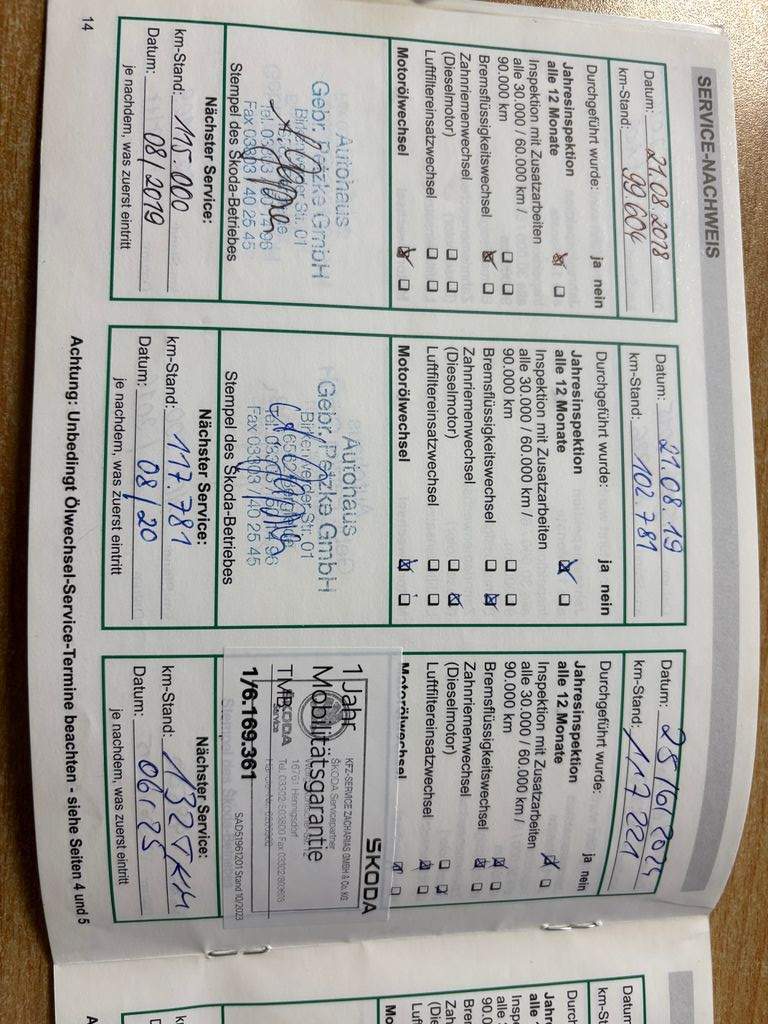 SERVICE-NACHWEIS
Datum: 21.08.2018
km-Stand: 99.604
Durchgeführt wurde: ja nein
Jahresinspektion
alle 12 Monate
Inspektion mit Zusatzarbeiten
alle 30.000 / 60.000 km /
90.000 km
Bremsflüssigkeitswechsel
Zahnriemenwechsel
(Dieselmotor)
Luftfiltereinsatzwechsel
Motorölwechsel
Autohaus
Gebr. Petzke GmbH
Birkenwerder Str. 01
Fax 03303 / 40 25 45
Stempel des Skoda-Betriebes
Nächster Service:
km-Stand: 115.000
Datum: 08/2019
je nachdem, was zuerst eintritt
14
Datum: 21.08.19
km-Stand: 102.781
Durchgeführt wurde: ja nein
Jahresinspektion
alle 12 Monate
Inspektion mit Zusatzarbeiten
alle 30.000 / 60.000 km /
90.000 km
Bremsflüssigkeitswechsel
Zahnriemenwechsel
(Dieselmotor)
Luftfiltereinsatzwechsel
Motorölwechsel
Autohaus
Gebr. Petzke GmbH
Birkenwerder Str. 01
Fax 03303 / 40 25 45
Stempel des Skoda-Betriebes
Nächster Service:
km-Stand: 117.781
Datum: 08/20
je nachdem, was zuerst eintritt
Datum: 25/6/2024
km-Stand: 117 221
Durchgeführt wurde: ja nein
Jahresinspektion
alle 12 Monate
Inspektion mit Zusatzarbeiten
alle 30.000 / 60.000 km /
90.000 km
Bremsflüssigkeitswechsel
Zahnriemenwechsel
(Dieselmotor)
Luftfiltereinsatzwechsel
Motorölwechsel
ŠKODA
KFZ-SERVICE ZACHARIAS GMBH & Co. KG
ŠKODA Servicepartner
16761 Hennigsdorf
Tel. 03302-803800 Fax 03302-
1 Jahr
Mobilitätsgarantie
TMB
ŠKODA
Service
1/6.169.361
SAD51961201 Stand 10/2023
Nächster Service:
km-Stand: 132 TKM
Datum: 06/25
je nachdem, was zuerst eintritt
Achtung: Unbedingt Ölwechsel-Service-Termine beachten - siehe Seiten 4 und 5
Datum
km-St
Durch
Jahre
alle
Insp
alle
90.0
Bre
Zah
(Die
Luf
Mo